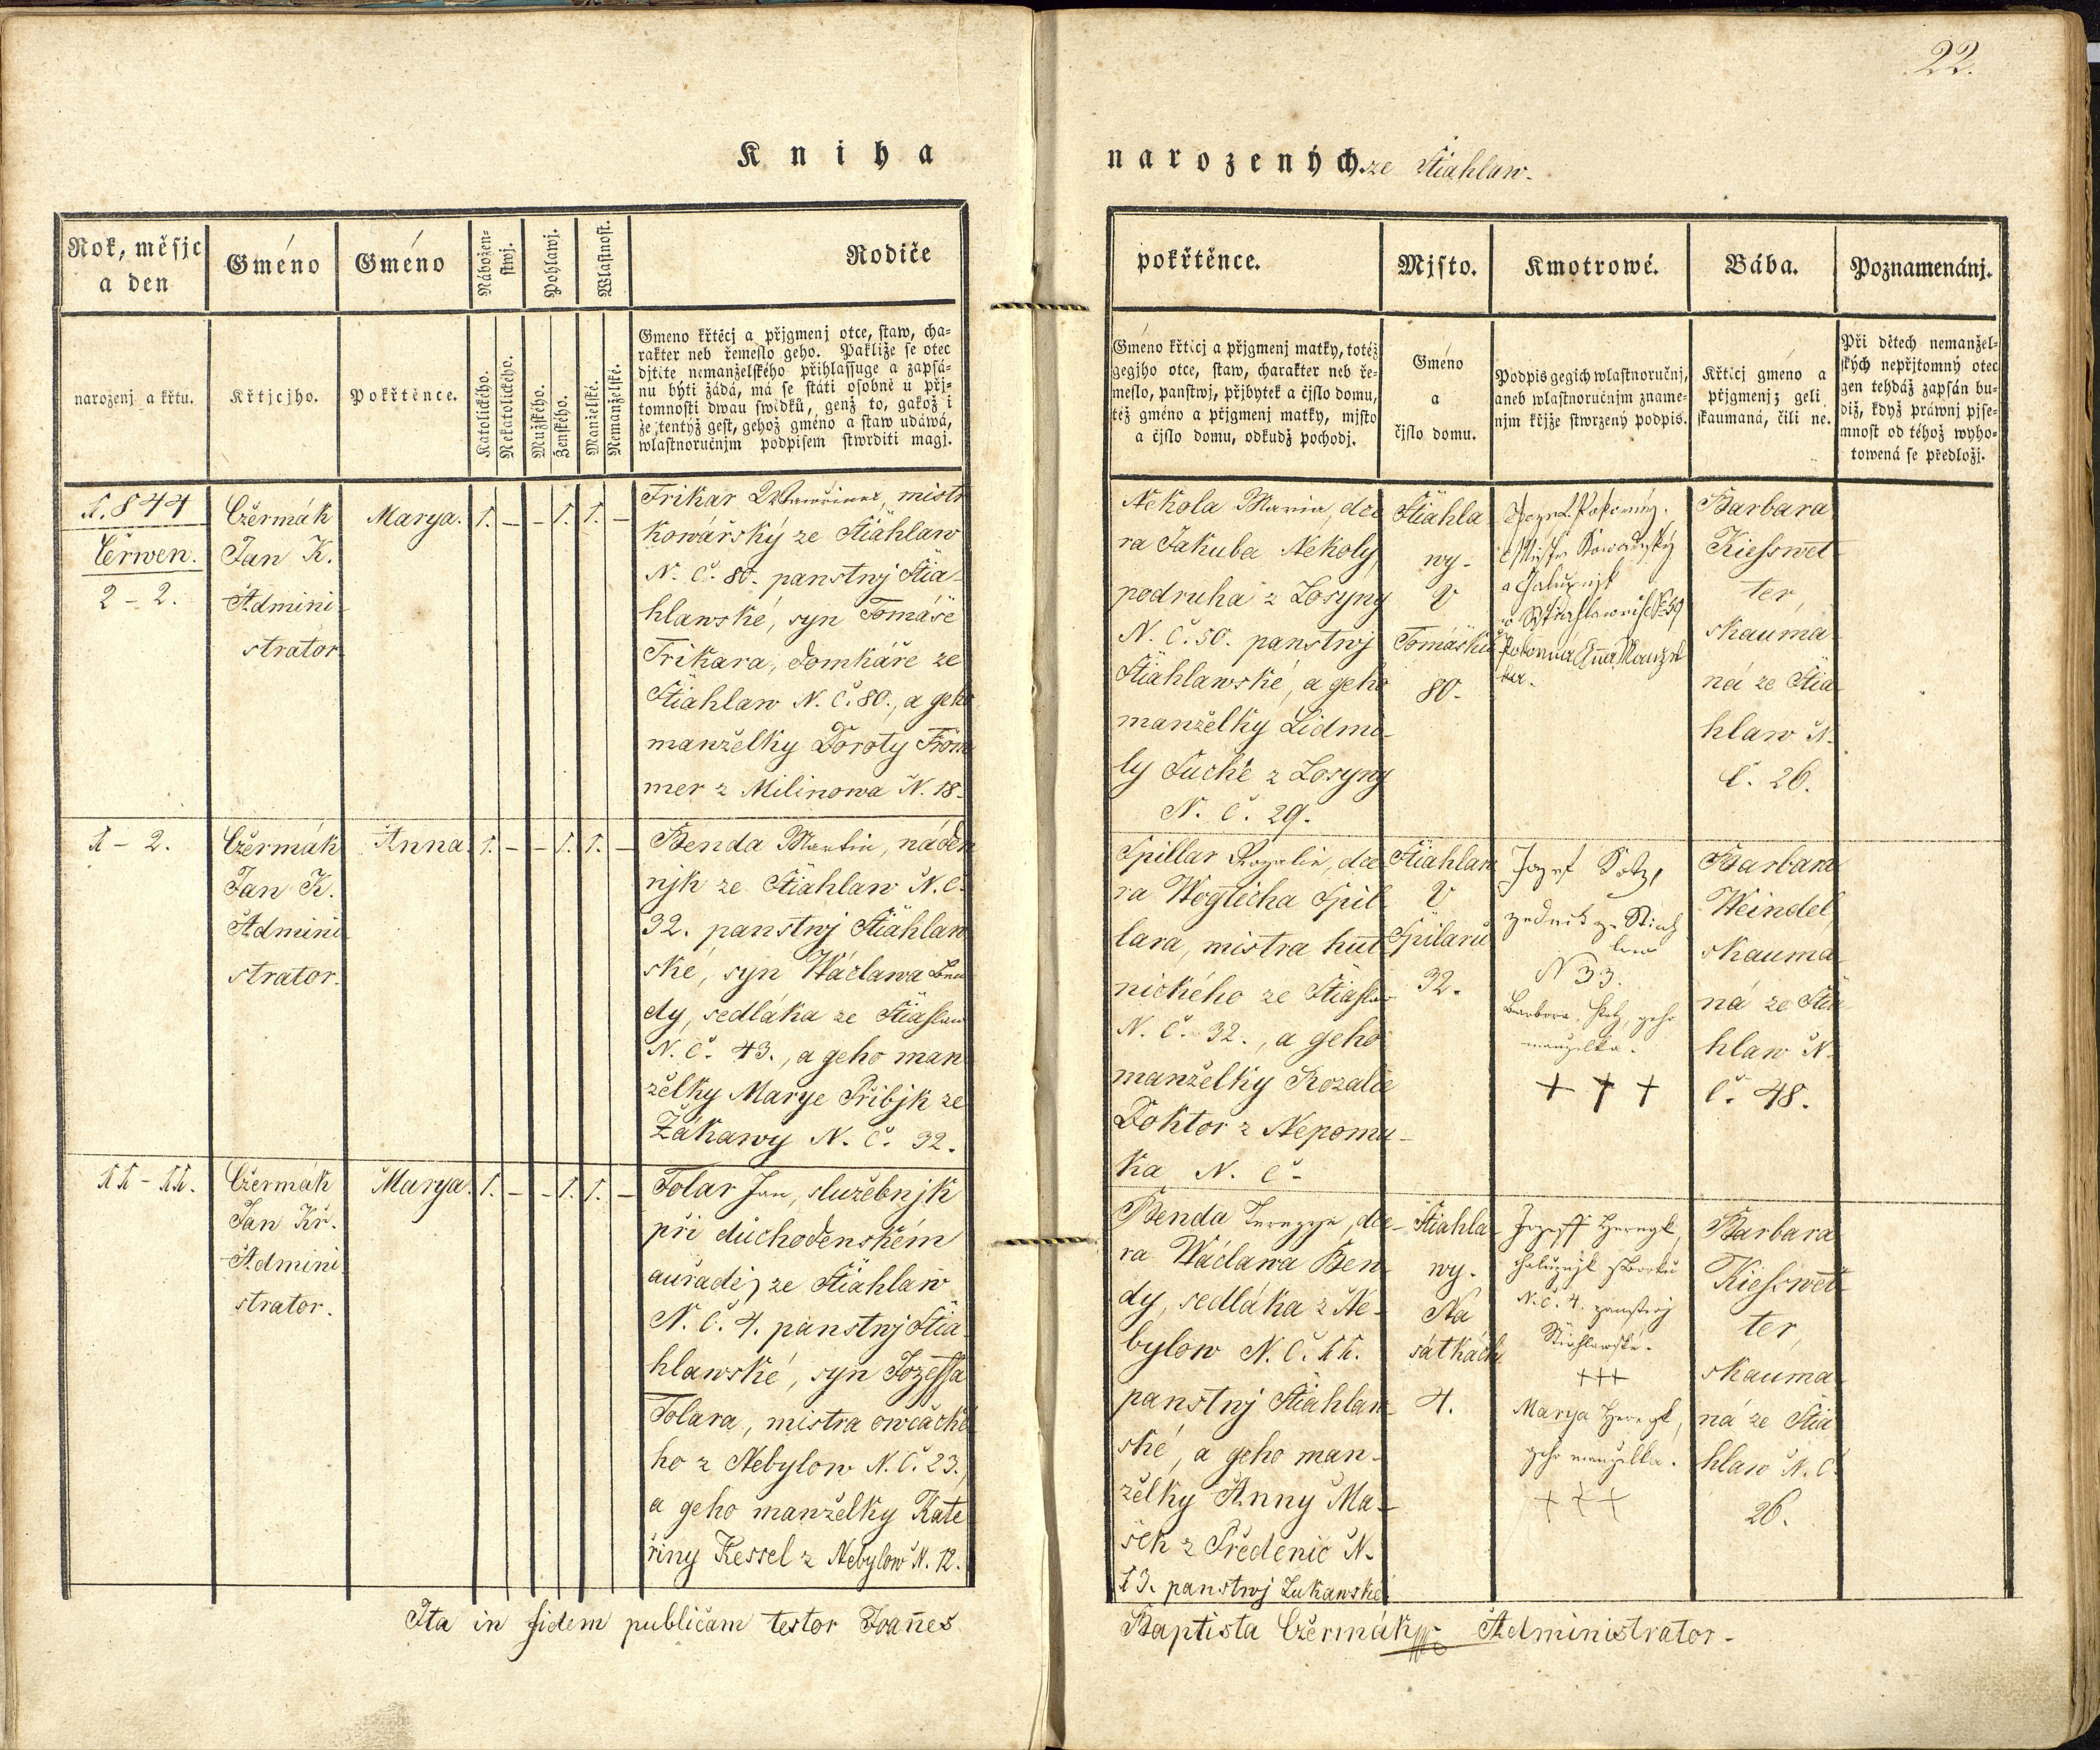 22.
Kniha
narozených. ze Stiahlaw.
Rok, měsjc
a den
Gméno
Gméno
Nábožen-
stwj.
Pohlawj.
Wlastnost.
Rodiče
narozenj a křtu.
Křtjcjho.
Pokřtěnce.
Katolického.
Nekatolického.
Mužského.
Ženského.
Manželské.
Nemanželské.
Gmeno křtěcj a přjgmenj otce, staw, cha-
rakter neb řemeslo geho. Pakliže se otec
djtěte nemanželského přihlassuge a zapsá-
nu býti žádá, má se státi osobně u přj-
tomnosti dwau swědků, genž to, gakož i
že tentýž gest, gehož gméno a staw udáwá,
wlastnoručnjm podpisem stwrditi magj.
1.844
Čerwen.
2 - 2.
Cžermák
Jan K.
Admini-
strator
Marya.
1. - - 1. 1. -
Trikar Wawřinec, mistr
kowářský ze Stiahlaw
N. Č. 80. panstwj Stia-
hlawské, syn Tomáše
Trikara, domkáře ze
Stiahlaw N. Č. 80., a geho
manželky Doroty From
mer z Milinowa N. 18.
1 - 2.
Cžermák
Jan K.
Admini-
strator.
Anna.
1. - - 1. 1. -
Benda Martin, náden
njk ze Stiahlaw N. Č.
32. panstwj Stiahlaw
ské, syn Wáclawa Ben
dy, sedláka ze Stiahlaw
N. Č. 43., a geho man
želky Marye Přibjk ze
Žákawy N. Č. 32.
11 - 11.
Cžermák
Jan Kř.
Admini
strator.
Marya.
1. - - 1. 1. -
Tolar Jan, služebnjk
při důchodenském
auřadě, ze Stiahlaw
N. Č. 4. panstwj Stia-
hlawské, syn Jozeffa
Tolara, mistra owčácké
ho z Nebylow N. Č. 23.,
a geho manželky Kate
řiny Kessel z Nebylow N. 12.
Ita in fidem publicam testor Joañes
pokřtěnce.
Mjsto.
Kmotrowé.
Bába.
Poznamenánj.
Gméno křtěcj a přjgmenj matky, totéž
gegjho otce, staw, charakter neb ře-
meslo, panstwj, přjbytek a čjslo domu,
též gméno a přjgmenj matky, mjsto
a čjslo domu, odkudž pochodj.
Gméno
a
čjslo domu.
Podpis gegich wlastnoručnj,
aneb wlastnoručnjm zname-
njm křjže stwrzený podpis.
Křtěcj gméno a
přjgmenj; geli
skaumaná, čili ne.
Při dětech nemanžel-
ských nepřjtomný otec
gen tehdáž zapsán bu-
diž, když práwnj pjse-
mnost od téhož wyho-
towená se předložj.
Nekola Maria, dce
ra Jakuba Nekoly,
podruha z Losyny
N. Č. 50. panstwj
Stiahlawské, a geho
manželky Lidmi-
ly Suché z Losyny
N. Č. 29.
Stiahla
wy.
U
Tomášků
80.
Pokorný.
Mistr Kowářský
a Chalupnjk
Barbara
Kiesswet-
ter,
skauma
ná ze Stia-
hlaw N.
Č. 26.
Spillar Rozalie, dce
ra Wogtěcha Spil-
lara, mistra hut
nického ze Stiahlaw
N. Č. 32., a geho
manželky Rozalie
Doktor z Nepomu-
ka N. Č.
Stiahlaw
U
Spilarů
32.
Jozef Kotz,
zednik ze Stiah
law
N 33.
Barbora Kotz, geho
manzelka.
+ + +
Barbara
Weindel,
skauma
ná ze Stia-
hlaw N.
Č. 48.
Benda Terezye, dce-
ra Wáclawa Ben
dy, sedláka z Ne-
bylow N. Č. 11.
panstwj Stiahlaw-
ské, a geho man-
želky Anny Ma-
šek z Předenic N.
13. panstwj Lukawské
Stiahla
wy.
Na
sátkách
4.
Jozeff
chalupnjk
N. Č. 4. panstwj
Stiahlawské.
+++
Marya
geho manzelka.
+++
Barbara
Kiesswet-
ter,
skauma
ná ze Stia
hlaw N. Č.
26.
Baptista Cžermák Administrator.